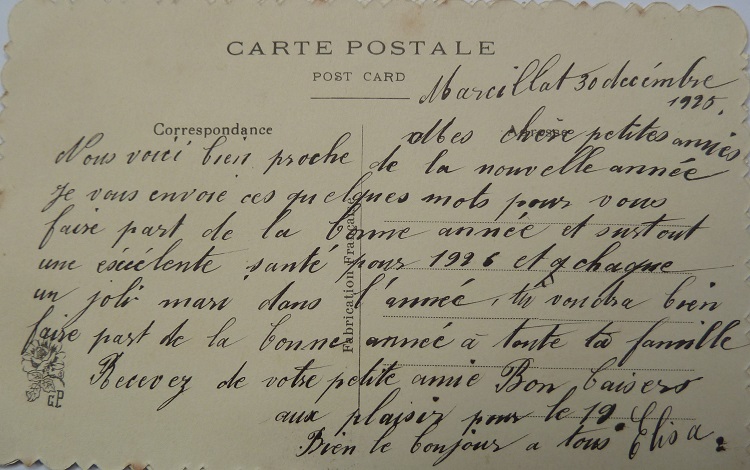 CARTE POSTALE
POST CARD
Marcillat 30 decémbre
1925.
Correspondance
Adresse
Mes chère petites amies
Nous voici bien proche de la nouvelle année
Je vous envoie ces quelques mots pour vous
faire part de la bonne année et surtout
une éxcélente santé pour 1926 et q chaque
un joli mari dans l'année, tu vondra bien
faire part de la bonne année à toute ta famille
Recevez de votre petite amie Bon baisers
aux plaisir pour le 19
Bien le bonjour a tous Elisa.
Fabrication Française